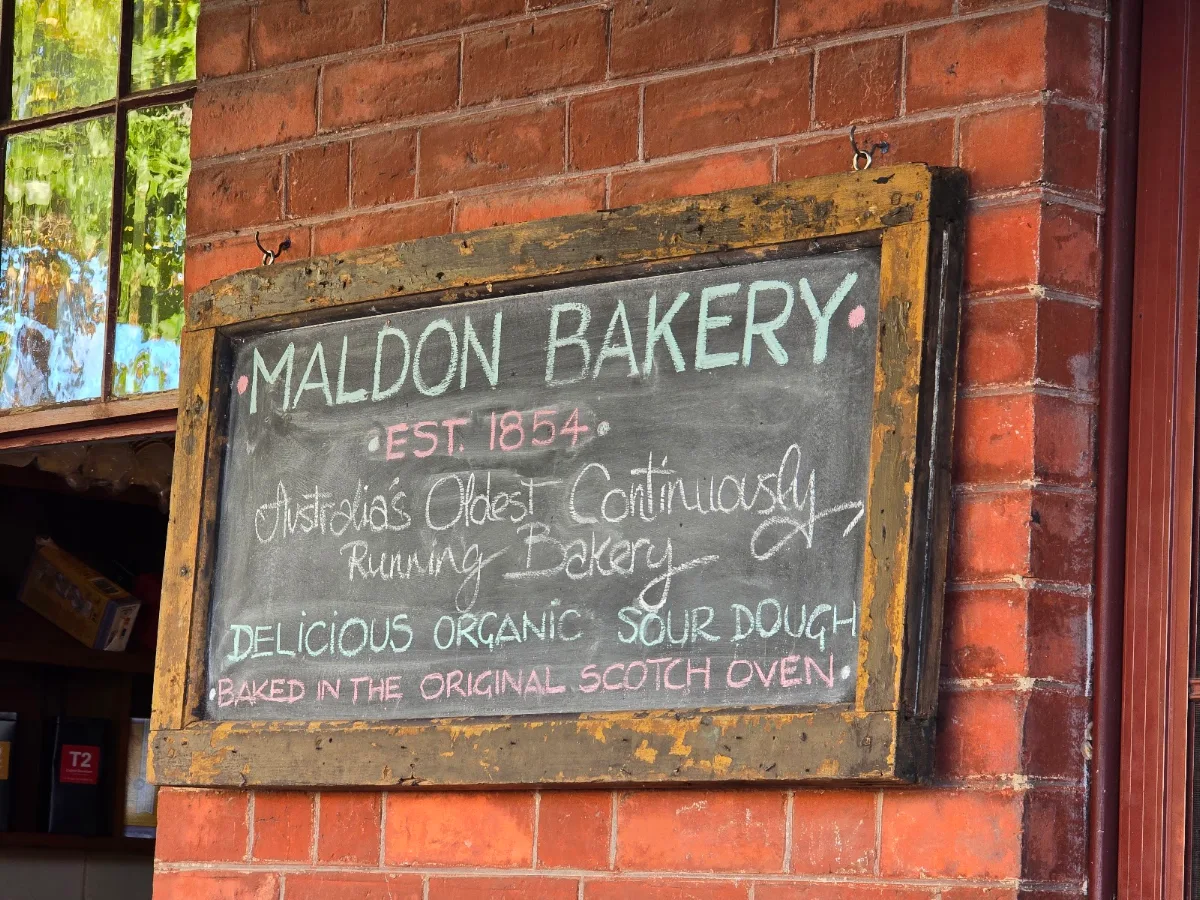 MALDON BAKERY
EST. 1854
Australia's Oldest Continuously
Running Bakery
DELICIOUS ORGANIC SOUR DOUGH
BAKED IN THE ORIGINAL SCOTCH OVEN
T2